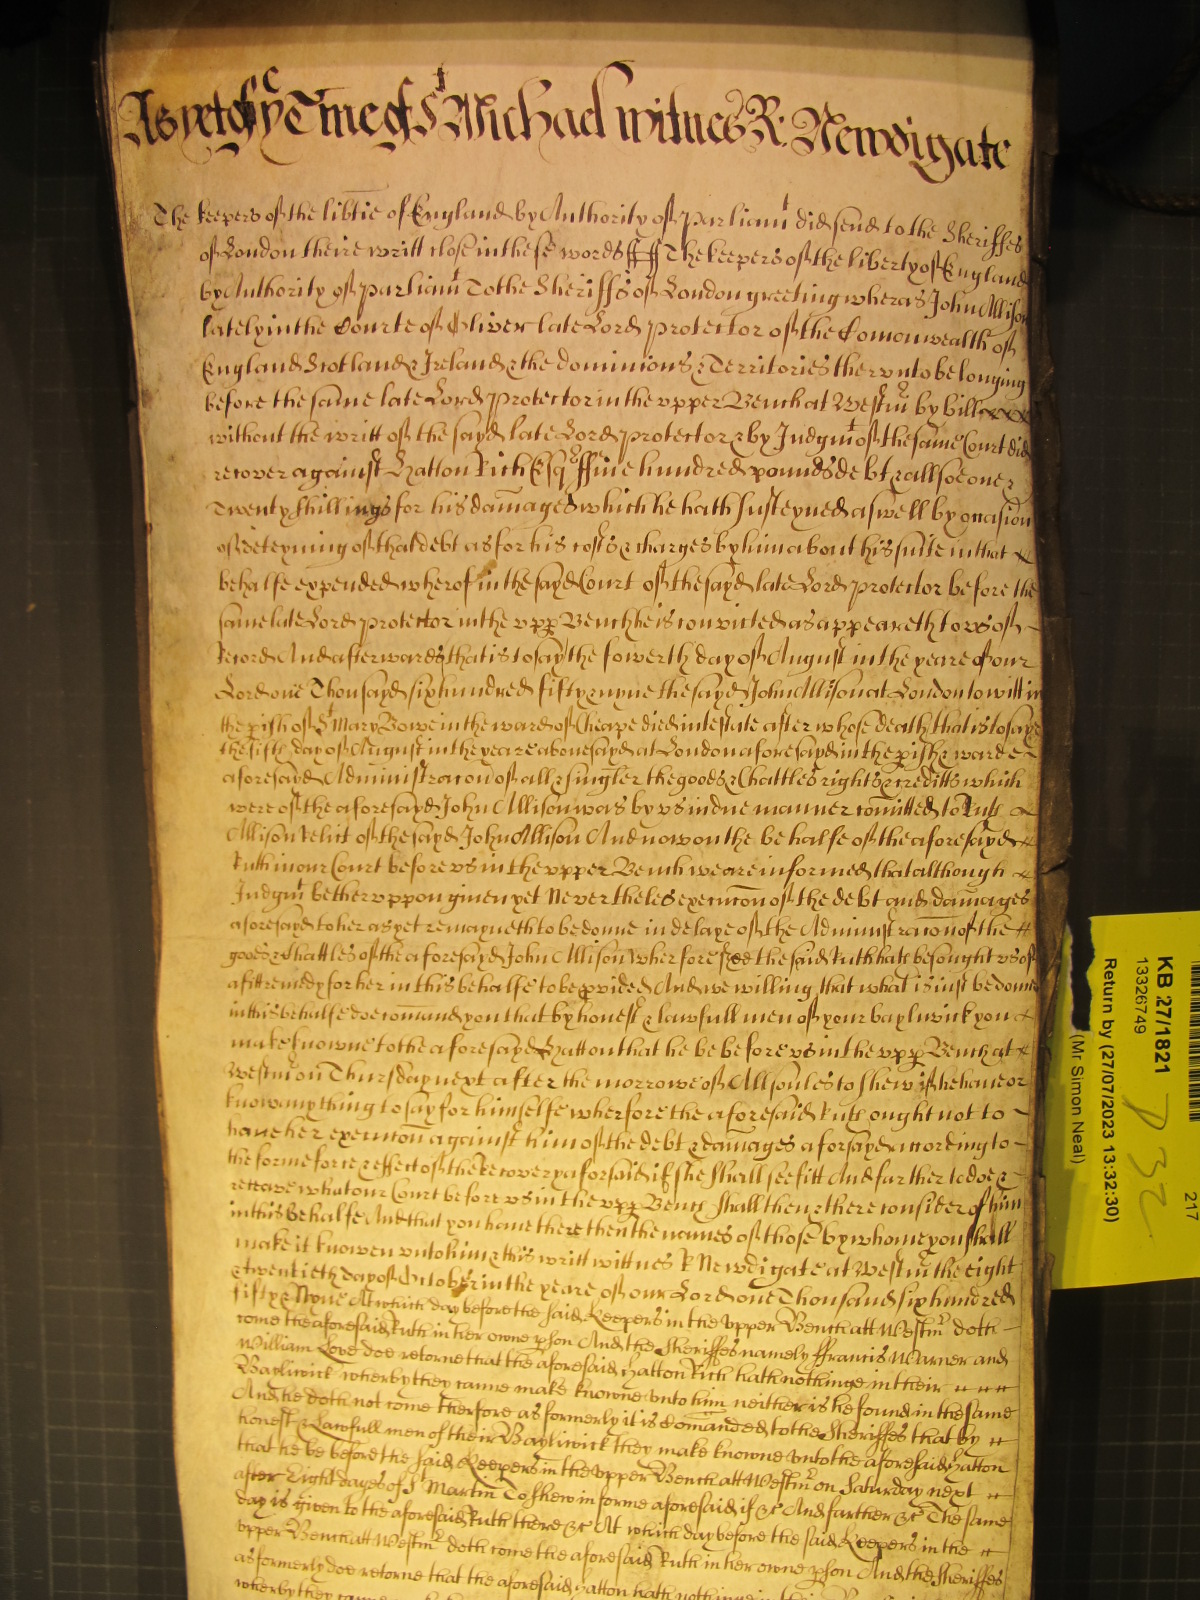 As yet of ye Tme of St Michael witnes R: Newdigate
The keepers of the libtie of England by Authority of Parliamt did send to the Sheriffes
of London theire writt close in these words ss The keepers of the liberty of England
by Authority of Parliamt To the Sheriffs of London greeting wheras John Allison
lately in the Courte of Oliver late Lord Protector of the Comonwealth of
England Scotland & Ireland & the dominions & Territories therunto belonging
before the same late Lord Protector in the vpper Bench at Westmr by bill
without the writt of the sayd late Lord Protector & by Judgmt of the same Court did
recover against Hatton Rich Esqr ffive hundred pounds debt & allsoe one &
Twenty shillings for his damages which he hath susteyned aswell by occasion
of deteyning of that debt as for his costs & charges by him about his suite in that
behalfe expended wherof in the sayd Court of the sayd late Lord Protector before the
same late Lord Protector in the vpp Bench he is convicted as appeareth to vs of
Record And afterwards that is to say the fowerth day of August in the yeare of our
Lord one Thousand six hundred fifty & nyne the sayd John Allison at London to witt in
the pish of St Mary Bowe in the ward of Cheape died intestate after whose death that is to saye
the fifth day of August in the yeare abovesayd at London aforesayd in the pish & warde
aforesayd Administracon of all & singler the goods & Chattles rights & creditts which
were of the aforesayd John Allison was by vs in due manner comitted to Ruth
Allison Relict of the sayd John Allison And now on the behalfe of the aforesayd
Ruth in our Court before vs in the vpper Bench we are informed that although
Judgmt be thervppon given yet Nevertheles execucon of the debt and damages
aforesayd to her as yet remayneth to be donne in delaye of the Administracon of the
goods & Chattles of the aforesayd John Allison Wherfore the said Ruth hath besought vs of
a fitt remedy for her in this behalfe to be pvided And we willing that what is iust be donne
in this behalfe doe comand you that by honest & lawfull men of your baylwick you
make knowne to the aforesayd Hatton that he be before vs in the vpp Bench at
Westmr on Thursday next after the morrowe of All soules to shew if he have or
know any thing to say for himselfe wherfore the aforesaid Ruth ought not to
have her execucon against him of the debt & damages aforsayd according to
the forme force & effect of the Recovery aforsaid if she shall see fitt And farther to doe &
receave what our Court before vs in the vpp Bench shall then & there consider of him
in this behalfe And that you have there then the names of those by whome you shall
make it knowen vnto him & this writt wittnes R Newdigate at Westmr the eight
& twentieth day of October in the yeare of our Lord one Thousand six hundred
fifty & Nyne At which day before the said Keepers in the vpper Bench att Westmr doth
come the aforesaid Ruth in her owne pson And the Sheriffes namely ffrancis Warner and
William Love doe retorne that the aforesaid Hatton Rich hath nothinge in their
Bayliwick wherby they canne make knowne vnto him neither is he found in the same
And he doth not come therfore as formerly it is comanded to the Sheriffes that by
honest & Lawfull men of their Bayliwick they make knowne vnto the aforesaid Hatton
that he be before the said Keepers in the vpper Bench att Westmr on Saturday next
after Eight dayes of St Martin To shew in forme aforesaid if &c And farther &c The same
day is given to the aforesaid Ruth there &c At which day before the said Keepers in the
vpper Bench att Westmr doth come the aforesaid Ruth in her owne pson And the Sheriffes
as formerly doe retorne that the aforesaid Hatton hath nothinge in their
wherby they canne
217
KB 27/1821
13326749
Return by (27/07/2023 13:32:30)
(Mr Simon Neal)
D 32